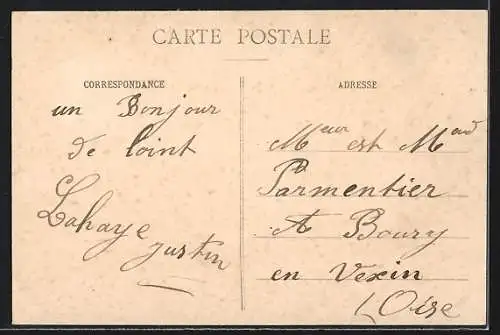 CARTE POSTALE
CORRESPONDANCE
un Bonjour
de loint
Lahaye
justin
ADRESSE
Meur est Mad
Parmentier
A Boury
en Vexin
Oise